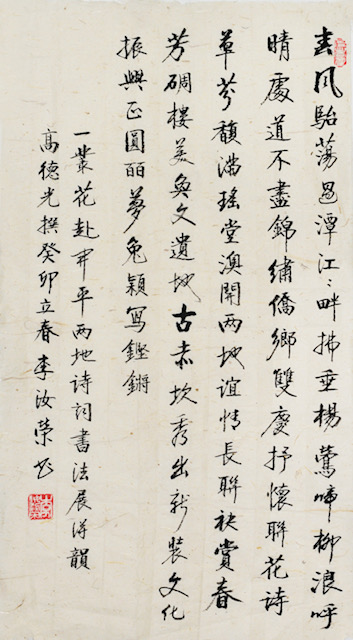 春风駘蕩過潭江〻畔拂垂楊鶯啼柳浪呼
晴處道不盡錦繡僑鄉雙慶抒懷聯花詩
草芬馥滿瑤堂澳開两地誼情長聯袂賞春
芳碉樓美奐文遺地古赤坎秀出新裝文化
振興正圓夢兔穎寫鏗鏘
一叢花赴开平两地诗词書法展得韻
高德光撰癸卯立春李汝榮书